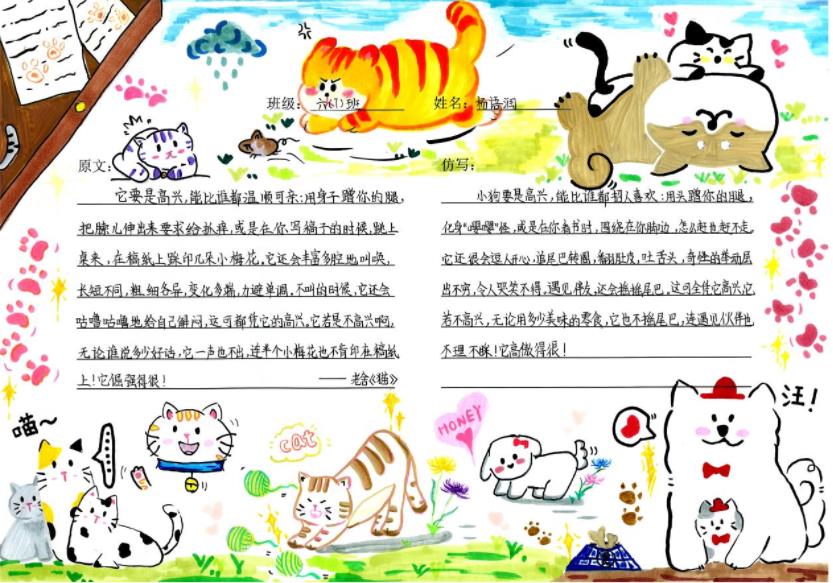 班级：六(1)班
姓名：杨语涵
原文：
它要是高兴，能比谁都温顺可亲：用身子蹭你的腿，
把脖儿伸出来要求给抓痒，或是在你写稿子的时候，跳上
桌来，在稿纸上踩印几朵小梅花。它还会丰富多腔地叫唤，
长短不同，粗细各异，变化多端，力避单调。不叫的时候，它还会
咕噜咕噜地给自己解闷，这可都凭它的高兴。它若是不高兴啊，
无论谁说多少好话，它一声也不出，连半个小梅花也不肯印在稿纸
上！它倔强得很！
——老舍《猫》
仿写：
小狗要是高兴，能比谁都招人喜欢：用头蹭你的腿，
化身“嘤嘤”怪，或是在你看书时，围绕在你脚边，怎么赶也赶不走。
它还很会逗人开心，追尾巴转圈，翻肚皮，吐舌头，奇怪的举动层
出不穷，令人哭笑不得，遇见伴友，还会摇摇尾巴。这可全凭它高兴，它
若不高兴，无论用多少美味的零食，它也不摇尾巴，连遇见伙伴也
不理不睬！它高傲得很！
喵～
cat
HONEY
汪！